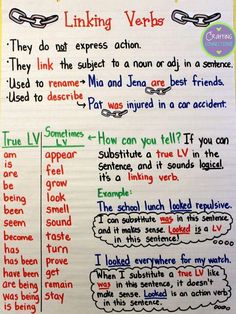 Linking Verbs
CRAFTING Connections
• They do not express action.
• They link the subject to a noun or adj. in a sentence.
• Used to rename → Mia and Jena are best friends.
• Used to describe
→ Pat was injured in a car accident.
True LV
am
is
are
be
being
been
seem
become
has
has been
have been
are being
was being
is being
Sometimes LV
appear
feel
grow
look
smell
sound
taste
turn
prove
get
remain
stay
How can you tell? If you
can substitute a true LV in
the sentence, and it sounds logical,
it's a linking verb.
Example:
The school lunch looked repulsive.
I can substitute was in this sentence
and it makes sense. Looked is a LV
in this sentence!
I looked everywhere for my watch.
When I substitute a true LV like
was in this sentence, it doesn't
make sense. Looked is an action verb
in this sentence.